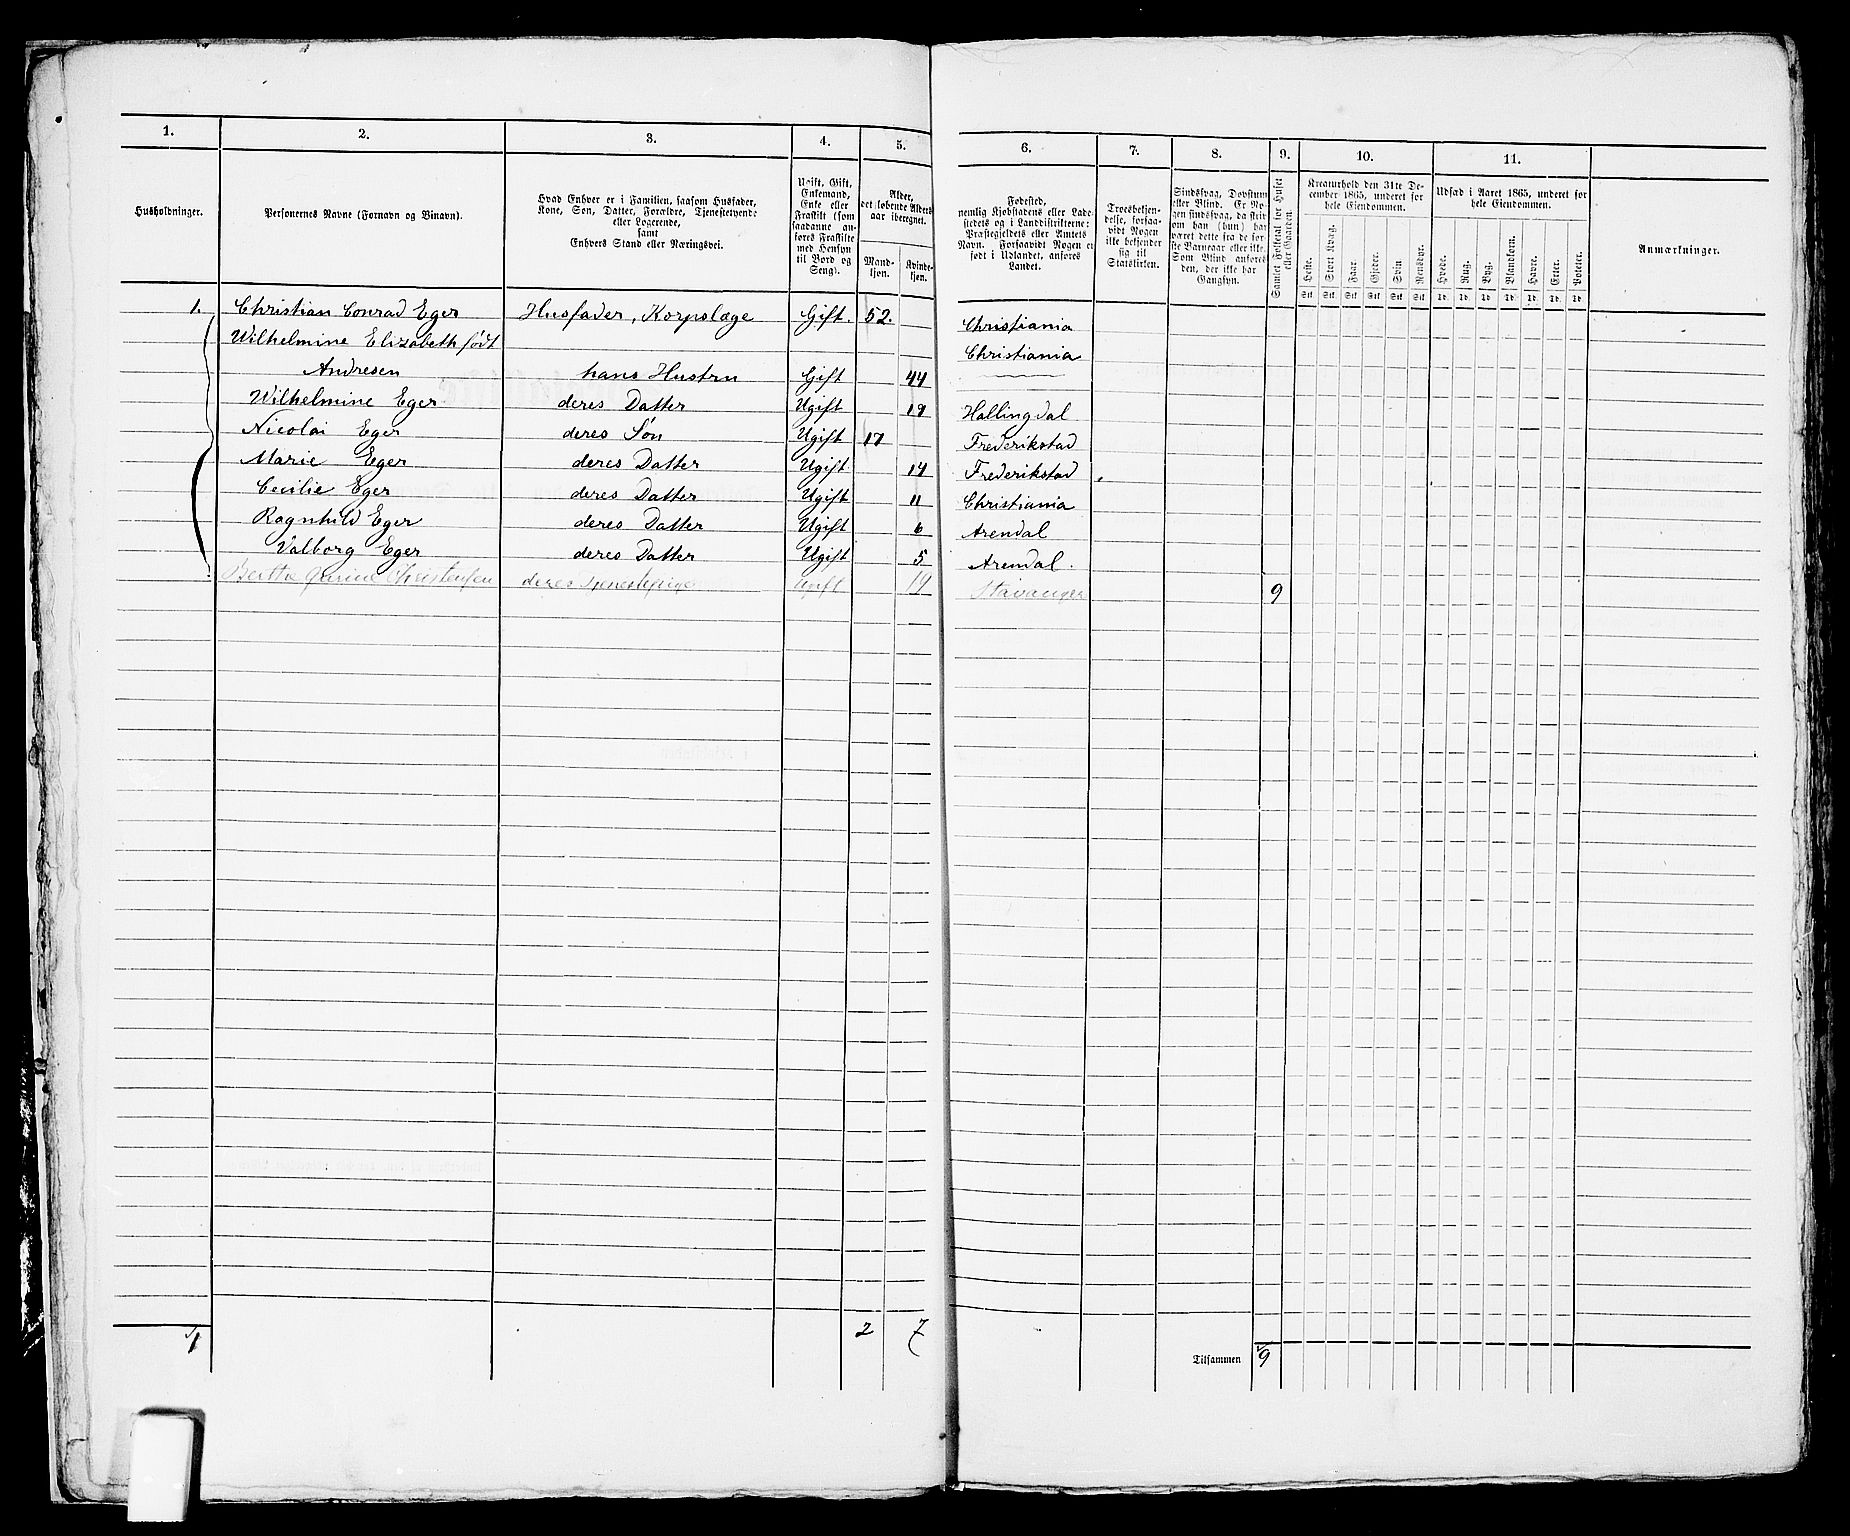 1. 2. 3. 4. 5. 6. 7. 8. 9. 10. 11.
Husholdninger.
Personernes Navne (Fornavn og Tilnavn).
Hvad Enhver er i Familien, saasom Husfader,
Kone, Søn, Datter, Forældre, Tjenestetyende
eller Logerende,
samt
Enhvers Stand eller Næringsvei.
Ugift, Gift,
Enkemand,
Enke eller
Fraskilt (som
saadanne an-
føres Fraskilte
med Hensyn
til Bord og
Seng).
Alder,
det løbende Alders-
aar iberegnet.
Mand-
kjøn.
Kvinde-
kjøn.
Fødested,
nemlig Kjøbstadens eller Lade-
stedets og i Landdistrikterne:
Præstegjeldets eller Amtets
Navn. Forsaavidt Nogen er
født i Udlandet, anføres
Landet.
Troesbekjen-
delse, forsaa-
vidt Nogen
ikke bekjender
sig til
Statskirken.
Sindssvag, Døvstum
eller Blind. Er No-
gen sindssvag, da skri-
ves om han (hun) har
været dette fra de før-
ste Barneaar eller ikke.
Som Blind anføres
den, der ikke har
Gangsyn.
Samlet Folketal for Huset
eller Gaarden.
Kreaturhold den 31te De-
cember 1865, underet for
hele Eiendommen.
Heste. Stort Kvæg. Faar. Gjeder. Svin. Rensdyr.
Stk. Stk. Stk. Stk. Stk. Stk.
Udsæd i Aaret 1865, underet for
hele Eiendommen.
Hvede. Rug. Byg. Blandkorn. Havre. Erter. Poteter.
Td. Td. Td. Td. Td. Td. Td.
Anmærkninger.
1. Christian Conrad Eger Husfader, Korpslæge Gift. 52. Christiania
Wilhelmine Elizabeth født Christiania
Andresen hans Hustru Gift 44
Wilhelmine Eger deres Datter Ugift 19 Hallingdal
Nicolai Eger deres Søn Ugift 17 Frederikstad
Marie Eger deres Datter Ugift 14 Frederikstad
Cecilie Eger deres Datter Ugift 11 Christiania
Ragnhild Eger deres Datter Ugift 6 Arendal
Valborg Eger deres Datter Ugift 5 Arendal.
Berthe Christensen deres Tjenestepige Ugift 19 Stavanger 9
1 2 7
Tilsammen 9